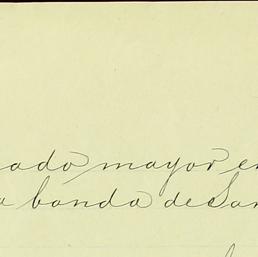 ado mayor en
a banda de San